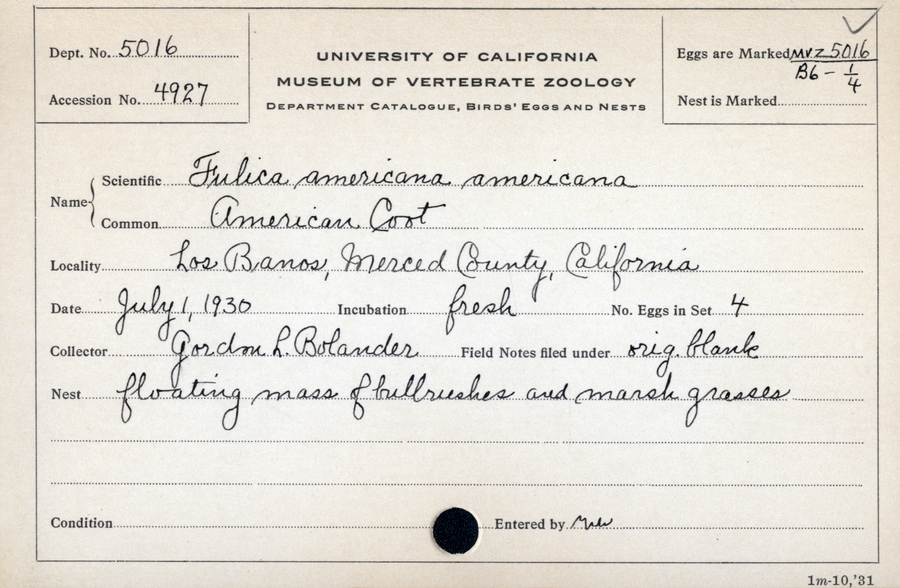 Dept. No. 5016
Accession No. 4927
UNIVERSITY OF CALIFORNIA
MUSEUM OF VERTEBRATE ZOOLOGY
DEPARTMENT CATALOGUE, BIRDS' EGGS AND NESTS
Eggs are Marked MVZ 5016
B6 - 1/4
Nest is Marked
Name
Scientific Fulica americana americana
Common American Coot
Locality Los Banos, Merced County, California
Date July 1, 1930 Incubation fresh No. Eggs in Set 4
Collector Gordon L. Bolander Field Notes filed under orig. blank
Nest floating mass of bullrushes and marsh grasses
Condition Entered by
1m-10,'31